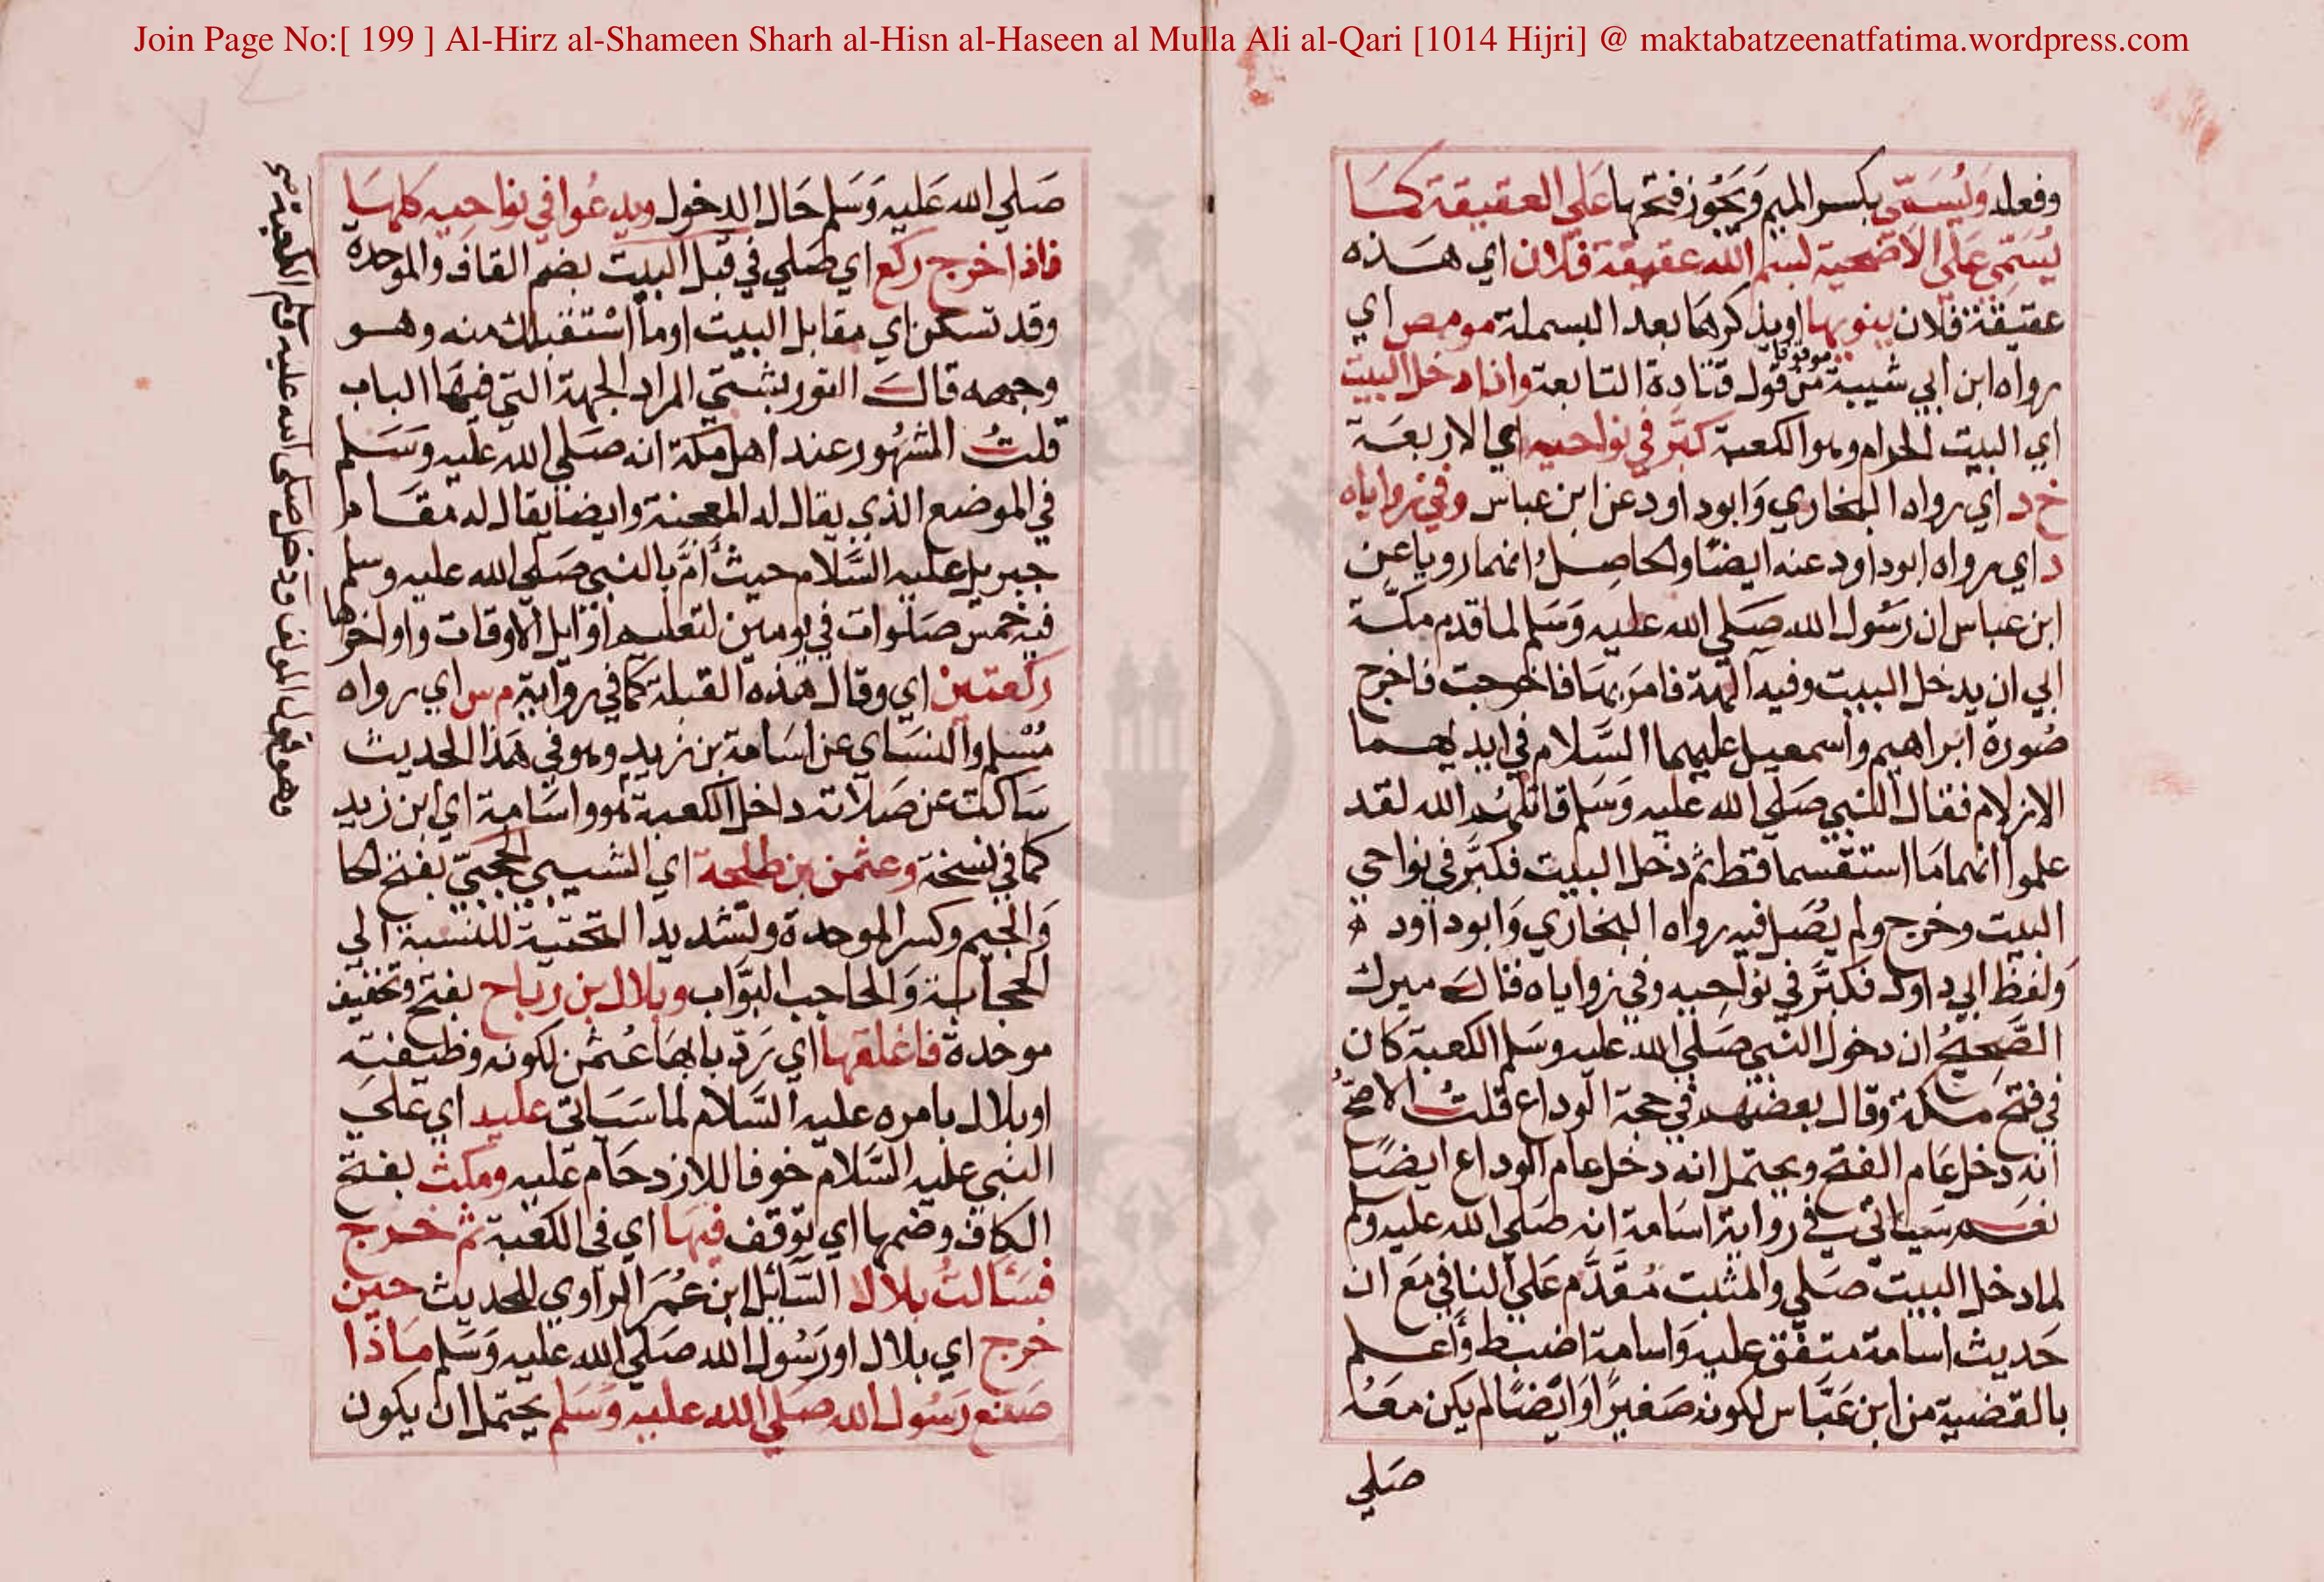 Join Page No:[ 199 ] Al-Hirz al-Shameen Sharh al-Hisn al-Haseen al Mulla Ali al-Qari [1014 Hijri] @ maktabatzeenatfatima.wordpress.com
وفعله وَيُسَمّي بكسر الميم وَيَجُوز فتحها عَلي العقيقة كمَا
يُسَمّي عَلي الاضحية بسم الله عقيقة فلان اي هَذه
عقيقة فلان ينويها او يذكرهَا بعد البسملة مومص اي
رواه ابن ابي شيبة موقوفا من قول قتادة التابعة واذا دخل البيت
اي البيت الحرام وهو الكعبة كبّر في نواحيه اي الاربعَة
خ د اي رواه البخاري وَابو داود عن ابن عباس وفي زواياه
د اي رواه ابو داود عنه ايضًا والحاصِلُ انهما رويا عن
ابن عباس ان رَسُول الله صَلي الله عليه وَسَلم لما قدم مكّة
ابي ان يدخل البيت وفيه آلهة فامرَ بهَا فاخرجت فاخرج
صُورة ابراهيم واسمعيل عليهما السَّلام في ايديهما
الازلام فقال النبي صَلي الله عليه وَسَلم قاتلهُم الله لقد
علموا انهما مَا استقسما قط ثم دخل البيت فكبَّر في نواحي
البيت وخرج ولم يُصَل فيه رواه البخاري وَابو داود
وَلفظ ابي داود فكبَّر في نوَاحِيه وفي زواياه قالَ ميرك
الصَّحِيحُ ان دخول النبي صَلي الله عليه وسَلم الكعبة كان
في فتح مكة وقال بعضهم في حجة الوداع قلتُ الاصَحّ
انه دخل عَام الفتح ويحتمل انه دخل عام الوداع ايضًا
نعَم سَياتي في رواية اسَامة انه صَلي الله عليه وسلم
لما دخل البيت صَلي والمثبت مُقَدَّم عَلي النافي مَع ان
حَديث اسامة متفق عليه وَاسامة اضبط وَأعلم
بالقضية من ابن عَبَّاس لكونه صَغيرًا وَايضًا لم يكن معَهُ
صَلي
صَلي الله عَليه وَسَلم حَال الدخول ويدعُوا في نواحيه كلهَا
فاذا خرج ركع اي صَلي في قبل البيت بضم القاف والموحدة
وقد تسكن اي مقابل البيت او ما اسْتقبلك منه وهو
وجهه قالَ التوربشتي المراد الجهة التي فيهَا الباب
قلتُ المشهُور عند اهل مكة انه صَلي الله عليه وسَلم
في الموضع الذي يقال له المعجنة وايضا يقال له مقَام
جبريل عليه السَّلام حيث أمَّ بالنبي صَلي الله عليه وسلم
فيه خمسَ صَلوات في يومين لتعليم اوّايل الاوقات واواخرها
ركعتين اي وقال هذه القبلة كمَا في رواية م س اي رواه
مُسْلم والنسَاي عن اسَامة بن زيد وهو في هَذا الحديث
سَاكت عن صَلاته داخل الكعبة هو واسَامة اي ابن زيد
كما في نسخة وعثمن بن طلحة اي الشيبي الحجَبيّ بفتح الحا
وَالجيم وكسر الموحدة وتشديد التحتية للنسبة الي
الحجابة وَالحاجب البوّاب وبلال بن رباح بفتح وتخفيف
موحدة فاغلقها اي رَدّ بابهَا عُثمن لكونه وظيفته
او بلال بامره عليه السَّلام لما سَيَاتي عليه اي عَلَي
النبي عليه السَّلام خوفا للازدحَام عَليه ومكث بفتح
الكاف وضمها اي توقف فيهَا اي في الكعبة ثم خرج
فسَالتُ بلالا السَّائل ابن عُمَرَ الراوي للحديث حين
خرج اي بلال او رَسُول الله صَلي الله عليه وَسَلم مَاذا
صَنع رَسُول الله صَلي الله عليه وسَلم يحتمل ان يكون